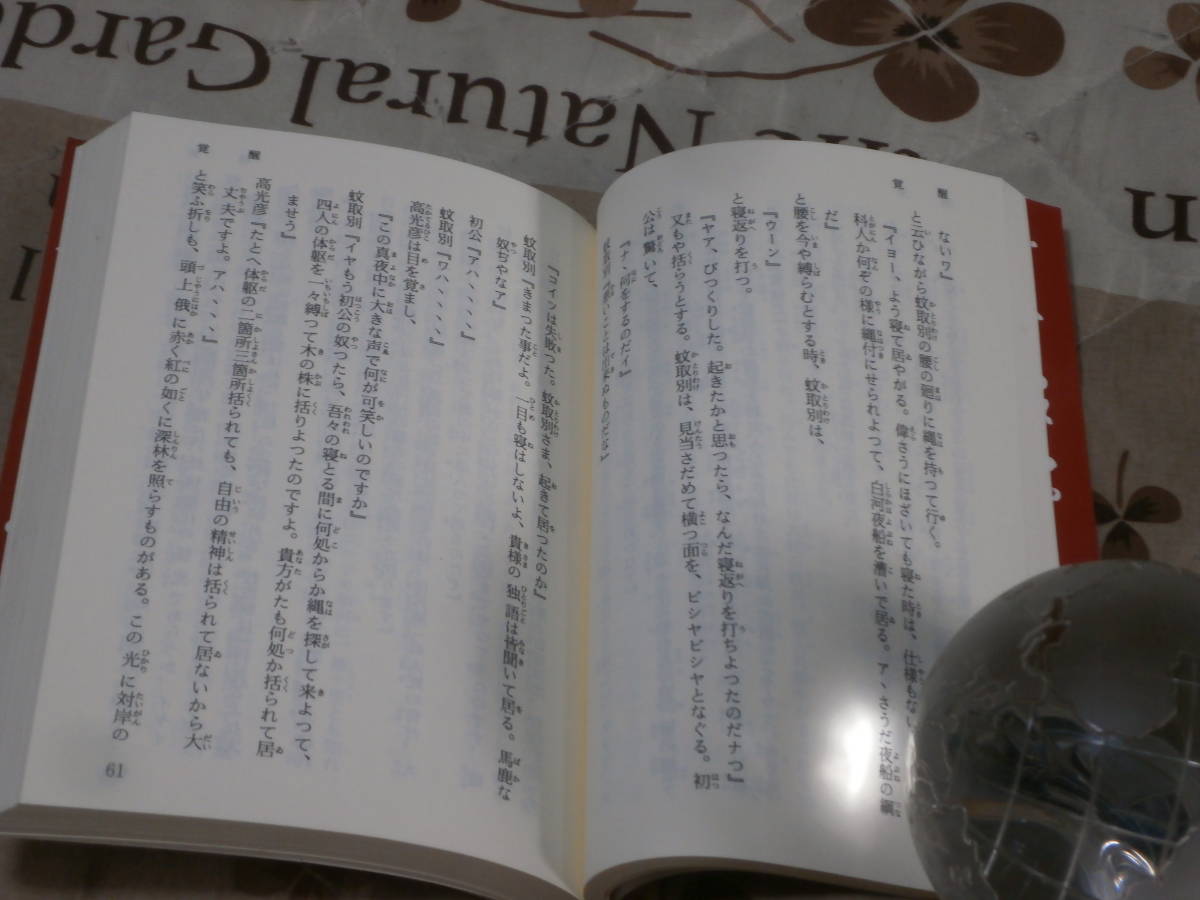 The Natural Garden
覚醒
ないワ』
と云ひながら蚊取別の腰の廻りに縄を持つて行く。
『イヨー、よう寝て居やがる。偉さうにほざいても寝た時は、仕様もない
科人か何ぞの様に縄付にせられよつて、白河夜船を漕いで居る。アヽさうだ夜船の綱
だ』
と腰を今や縛らむとする時、蚊取別は、
『ウーン』
と寝返りを打つ。
『ヤア、びつくりした。起きたかと思つたら、なんだ寝返りを打ちよつたのだナつ』
又もや括らうとする。蚊取別は、見当さだめて横つ面を、ピシヤピシヤとなぐる。初
公は驚いて、
『ナヽ何をするのだイ』
蚊取別『
『コインは失敗つた。蚊取別さま、起きて居つたのか』
蚊取別『きまつた事だよ。一目も寝はしないよ、貴様の独語は皆聞いて居る。馬鹿な
奴ぢやなア』
初公『アハヽヽヽ』
蚊取別『ワハヽヽヽ』
高光彦は目を覚まし、
『この真夜中に大きな声で何が可笑しいのですか』
蚊取別『イヤもう初公の奴つたら、吾々の寝とる間に何処からか縄を探して来よつて、
四人の体躯を一々縛つて木の株に括りよつたのですよ。貴方がたも何処か括られて居
ませう』
高光彦『たとへ体躯の二箇所三箇所括られても、自由の精神は括られて居ないから大
丈夫ですよ。アハヽヽヽ』
と笑ふ折しも、頭上俄に赤く紅の如くに深林を照らすものがある。この光に対岸の
覚醒
61